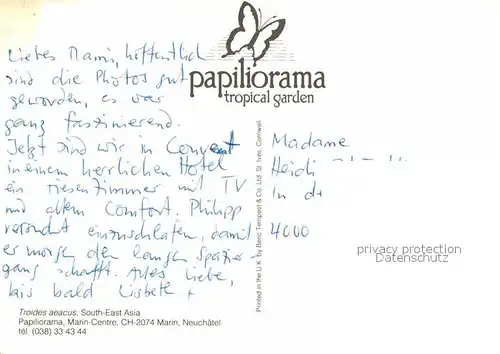 papiliorama
tropical garden
Liebes Mami, hoffentlich
sind die Photos gut
geworden, es war
ganz faszinierend.
Jetzt sind wir in Convent
in einem herrlichen Hotel
ein Riesenzimmer mit TV
und allem Comfort. Philipp
versucht einzuschlafen, damit
er morgen den langen Spazier-
gang schafft. Alles Liebe,
bis bald Lisbeth +
Madame
Heidi
In d
4000
privacy protection
Datenschutz
Printed in the U.K. by Beric Tempest & Co. Ltd. St. Ives, Cornwall.
Troides aeacus, South-East Asia
Papiliorama, Marin-Centre, CH-2074 Marin, Neuchâtel
tél. (038) 33 43 44